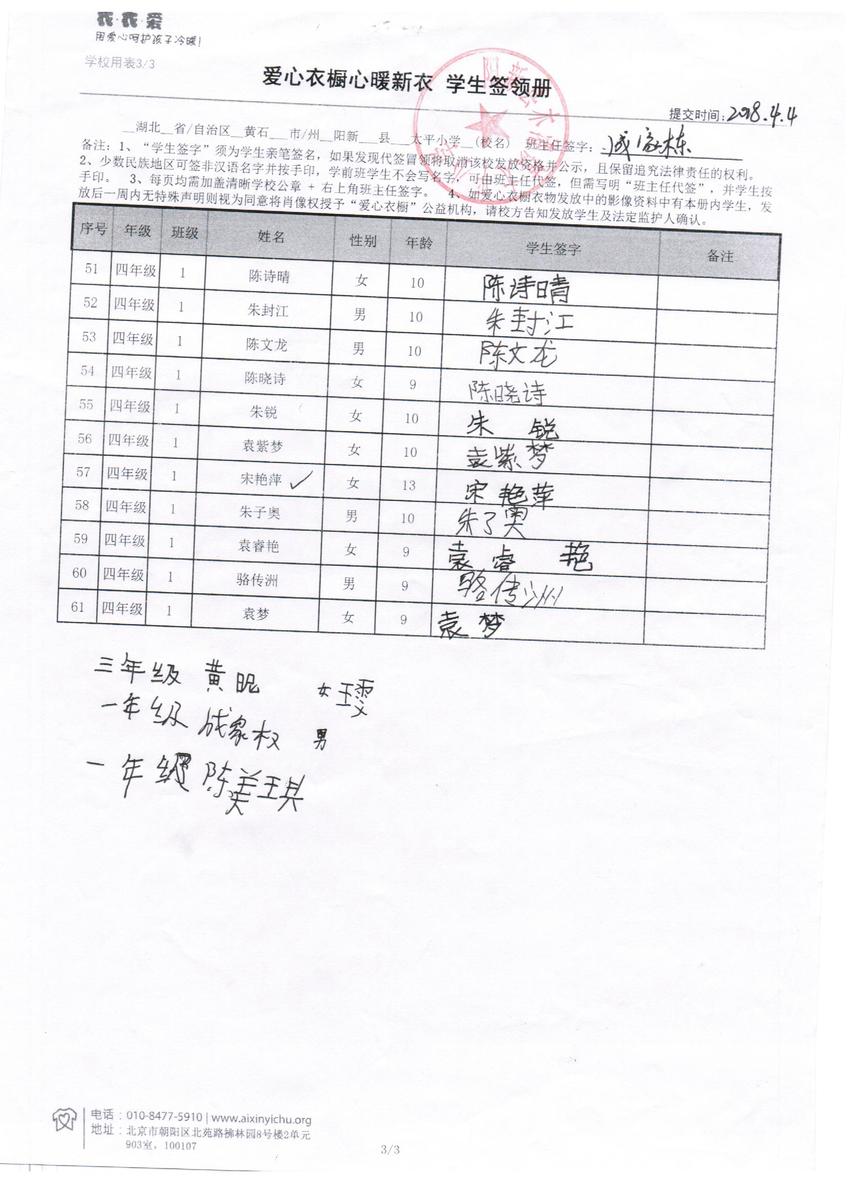 衣·衣·爱
用爱心呵护孩子冷暖!
学校用表3/3
爱心衣橱心暖新衣 学生签领册
提交时间:2018.4.4
__湖北__省/自治区__黄石___市/州__阳新___县___太平小学__(校名) 班主任签字:
备注:1、“学生签字”须为学生亲笔签名,如果发现代签冒领将取消该校发放资格并公示,且保留追究法律责任的权利。
2、少数民族地区可签非汉语名字并按手印,学前班学生不会写名字,可由班主任代签,但需写明“班主任代签”,并学生按
手印。 3、每页均需加盖清晰学校公章 + 右上角班主任签字。 4、如爱心衣橱衣物发放中的影像资料中有本册内学生,发
放后一周内无特殊声明则视为同意将肖像权授予“爱心衣橱”公益机构,请校方告知发放学生及法定监护人确认。
序号 年级 班级 姓名 性别 年龄 学生签字 备注
51 四年级 1 陈诗晴 女 10 陈诗晴
52 四年级 1 朱封江 男 10 朱封江
53 四年级 1 陈文龙 男 10 陈文龙
54 四年级 1 陈晓诗 女 9 陈晓诗
55 四年级 1 朱锐 女 10 朱 锐
56 四年级 1 袁紫梦 女 10 袁紫梦
57 四年级 1 宋艳萍 ✓ 女 13 宋艳萍
58 四年级 1 朱子奥 男 10 朱子奥
59 四年级 1 袁睿艳 女 9 袁睿 艳
60 四年级 1 骆传洲 男 9 骆传洲
61 四年级 1 袁梦 女 9 袁梦
三年级 黄昵 女
一年级 成象权 男
一年级 陈美琪
电话:010-8477-5910 | www.aixinyichu.org
地址:北京市朝阳区北苑路拂林园8号楼2单元
903室,100107
3/3